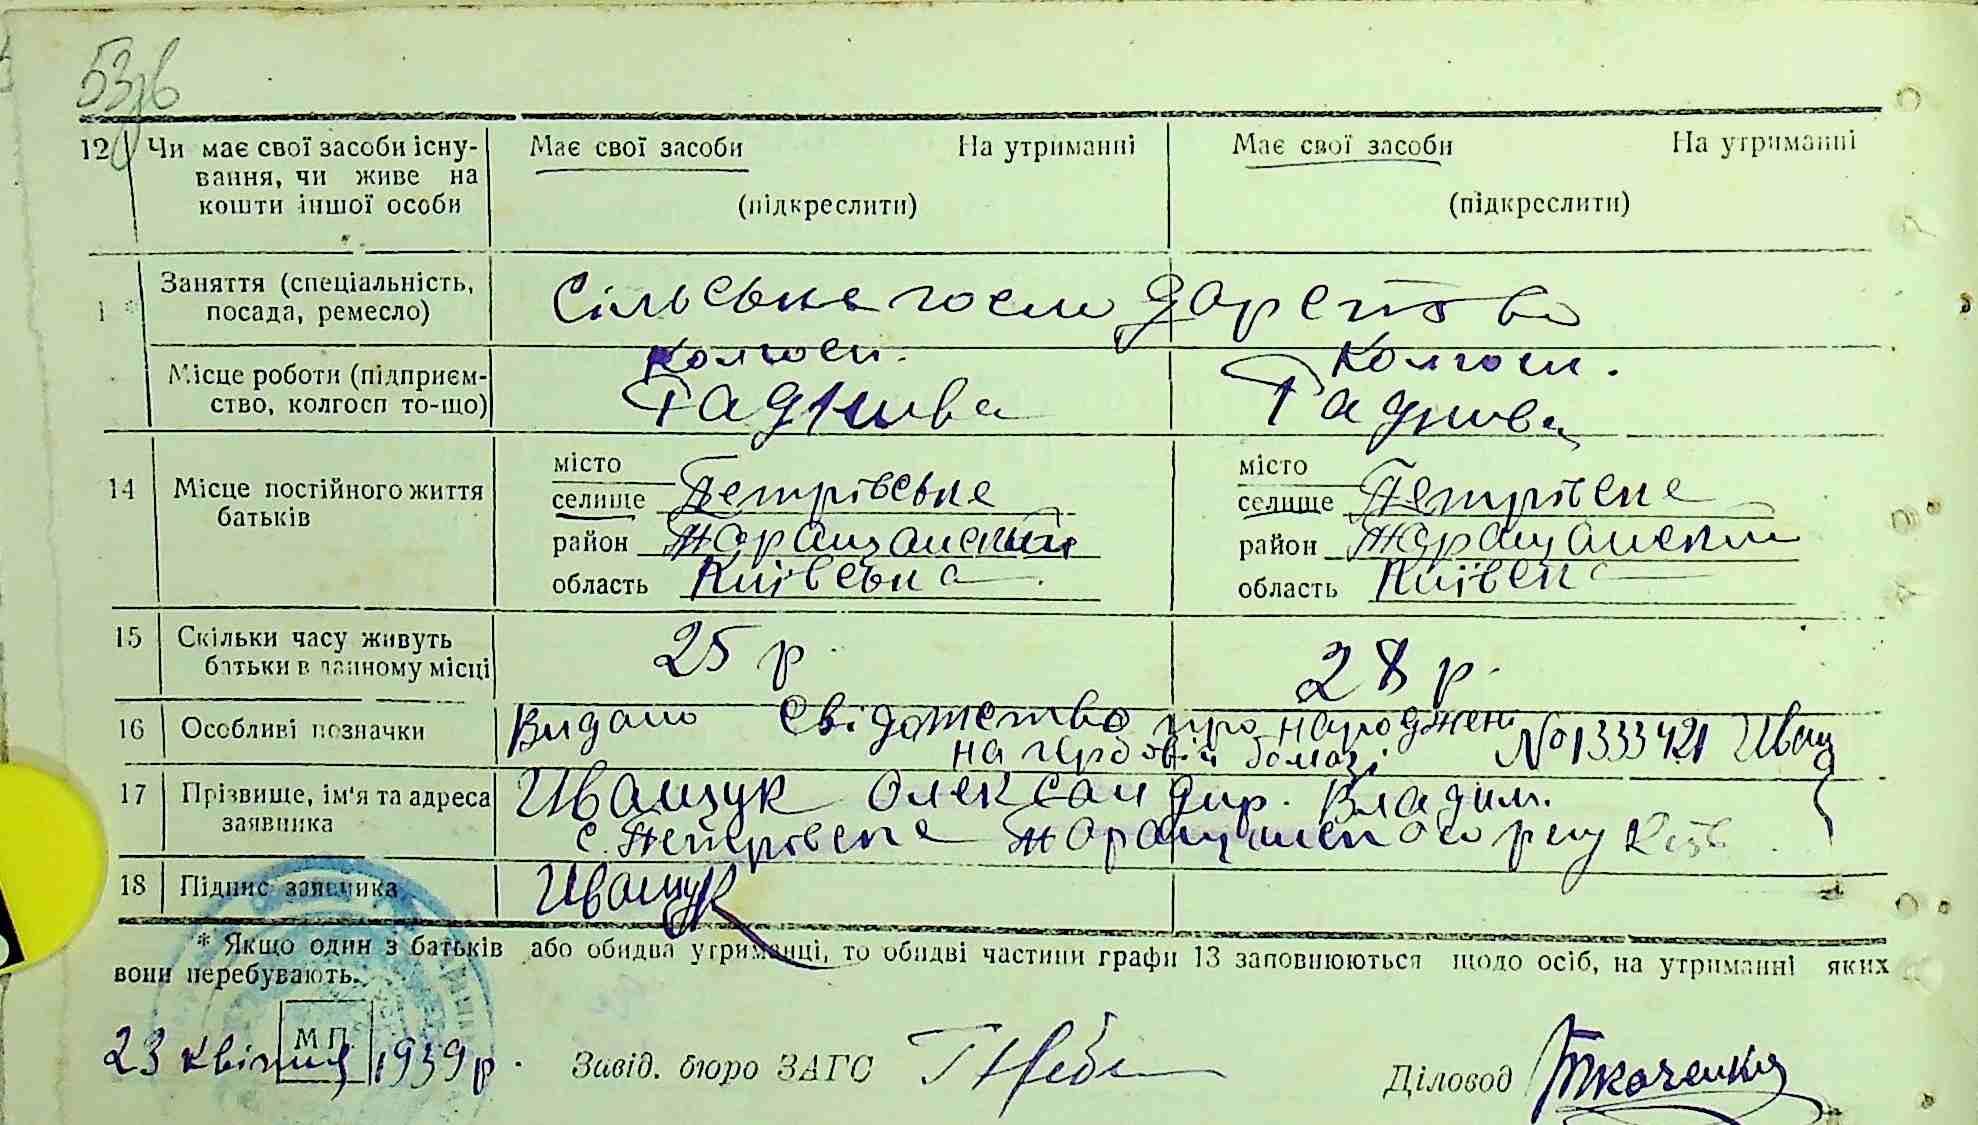 53зв
12 Чи має свої засоби існу-
вання, чи живе на
кошти іншої особи
Має свої засоби На утриманні
(підкреслити)
Має свої засоби На утриманні
(підкреслити)
1 * Заняття (спеціальність,
посада, ремесло)
Сільське господарство
Місце роботи (підприєм-
ство, колгосп то-що)
колгосп.
Рад нива
колгосп.
Рад нива
14 Місце постійного життя
батьків
місто
селище Петрівське
район Таращанський
область Київська
місто
селище Петрівске
район Таращанский
область Київск
15 Скільки часу живуть
батьки в данному місці
25 р.
28 р.
16 Особливі позначки
Видано свідоцтво про народжен №1333421 Иващ
на гербовій бомазі
17 Прізвище, ім'я та адреса
заявника
Иващук Олександр. Владим.
с. Петрівске Таращанського р-ну Київ
18 Підпис заявника
Иващук
* Якщо один з батьків або обидва утриманці, то обидві частини графи 13 заповнюються щодо осіб, на утриманні яких
вони перебувають.
М П.
23 квітня 1939 р.
Завід. бюро ЗАГС
Діловод Ткаченко